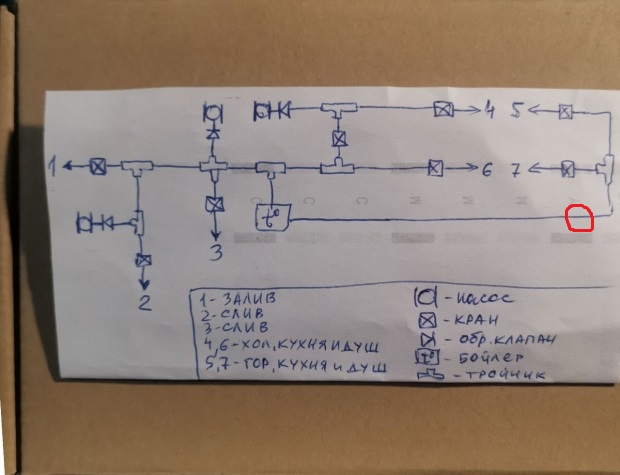 4 5
1 6 7
t°
3
2
1 - ЗАЛИВ
2 - СЛИВ
3 - СЛИВ
4,6 - ХОЛ, КУХНЯ И ДУШ
5,7 - ГОР, КУХНЯ И ДУШ
- НАСОС
- КРАН
- ОБР. КЛАПАН
t° - БОЙЛЕР
- ТРОЙНИК